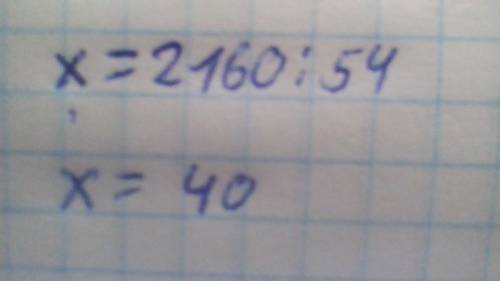 x=2160:54
x= 40